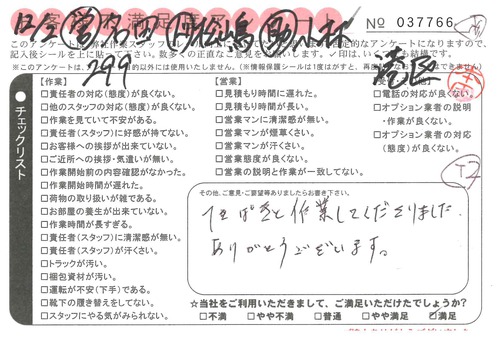 No 037766
299
港区
このアンケートは、弊社作業スタッフ
記入後シールを上に貼って下さい。数多くの正直なご意見をお聞かせ下さい。
【作業】
□責任者の対応(態度)が良くない。
□他のスタッフの対応(態度)が良くない。
□作業を見ていて不安がある。
□責任者(スタッフ)に好感が持てない。
□お客様への挨拶が出来ていない。
□ご近所への挨拶・気遣いが無い。
□作業開始前の内容確認がなかった。
□作業開始時間が遅れた。
□荷物の取り扱いが雑である。
□お部屋の養生が出来ていない。
□作業時間が長すぎる。
□責任者(スタッフ)に清潔感が無い。
□責任者(スタッフ)が汗くさい。
□トラックが汚い。
□梱包資材が汚い。
□運転が不安(下手)である。
□靴下の履き替えをしてない。
□スタッフにやる気がみられない。
【営業】
□見積もり時間に遅れた。
□見積もり時間が長い。
□営業マンに清潔感が無い。
□営業マンが煙草くさい。
□営業マンが汗くさい。
□営業態度が良くない。
□営業の説明と作業が一致してない。
□電話の対応が良くない。
□オプション業者の説明
・作業が良くない。
□オプション業者の対応
(態度)が良くない。
チェックリスト
その他、ご意見・ご要望等ありましたらお書き下さい。
てきぱきと作業してくださりました
ありがとうございます。
☆当社をご利用いただきまして、ご満足いただけたでしょうか?
□不満 □やや不満 □普通 □やや満足 ☑満足